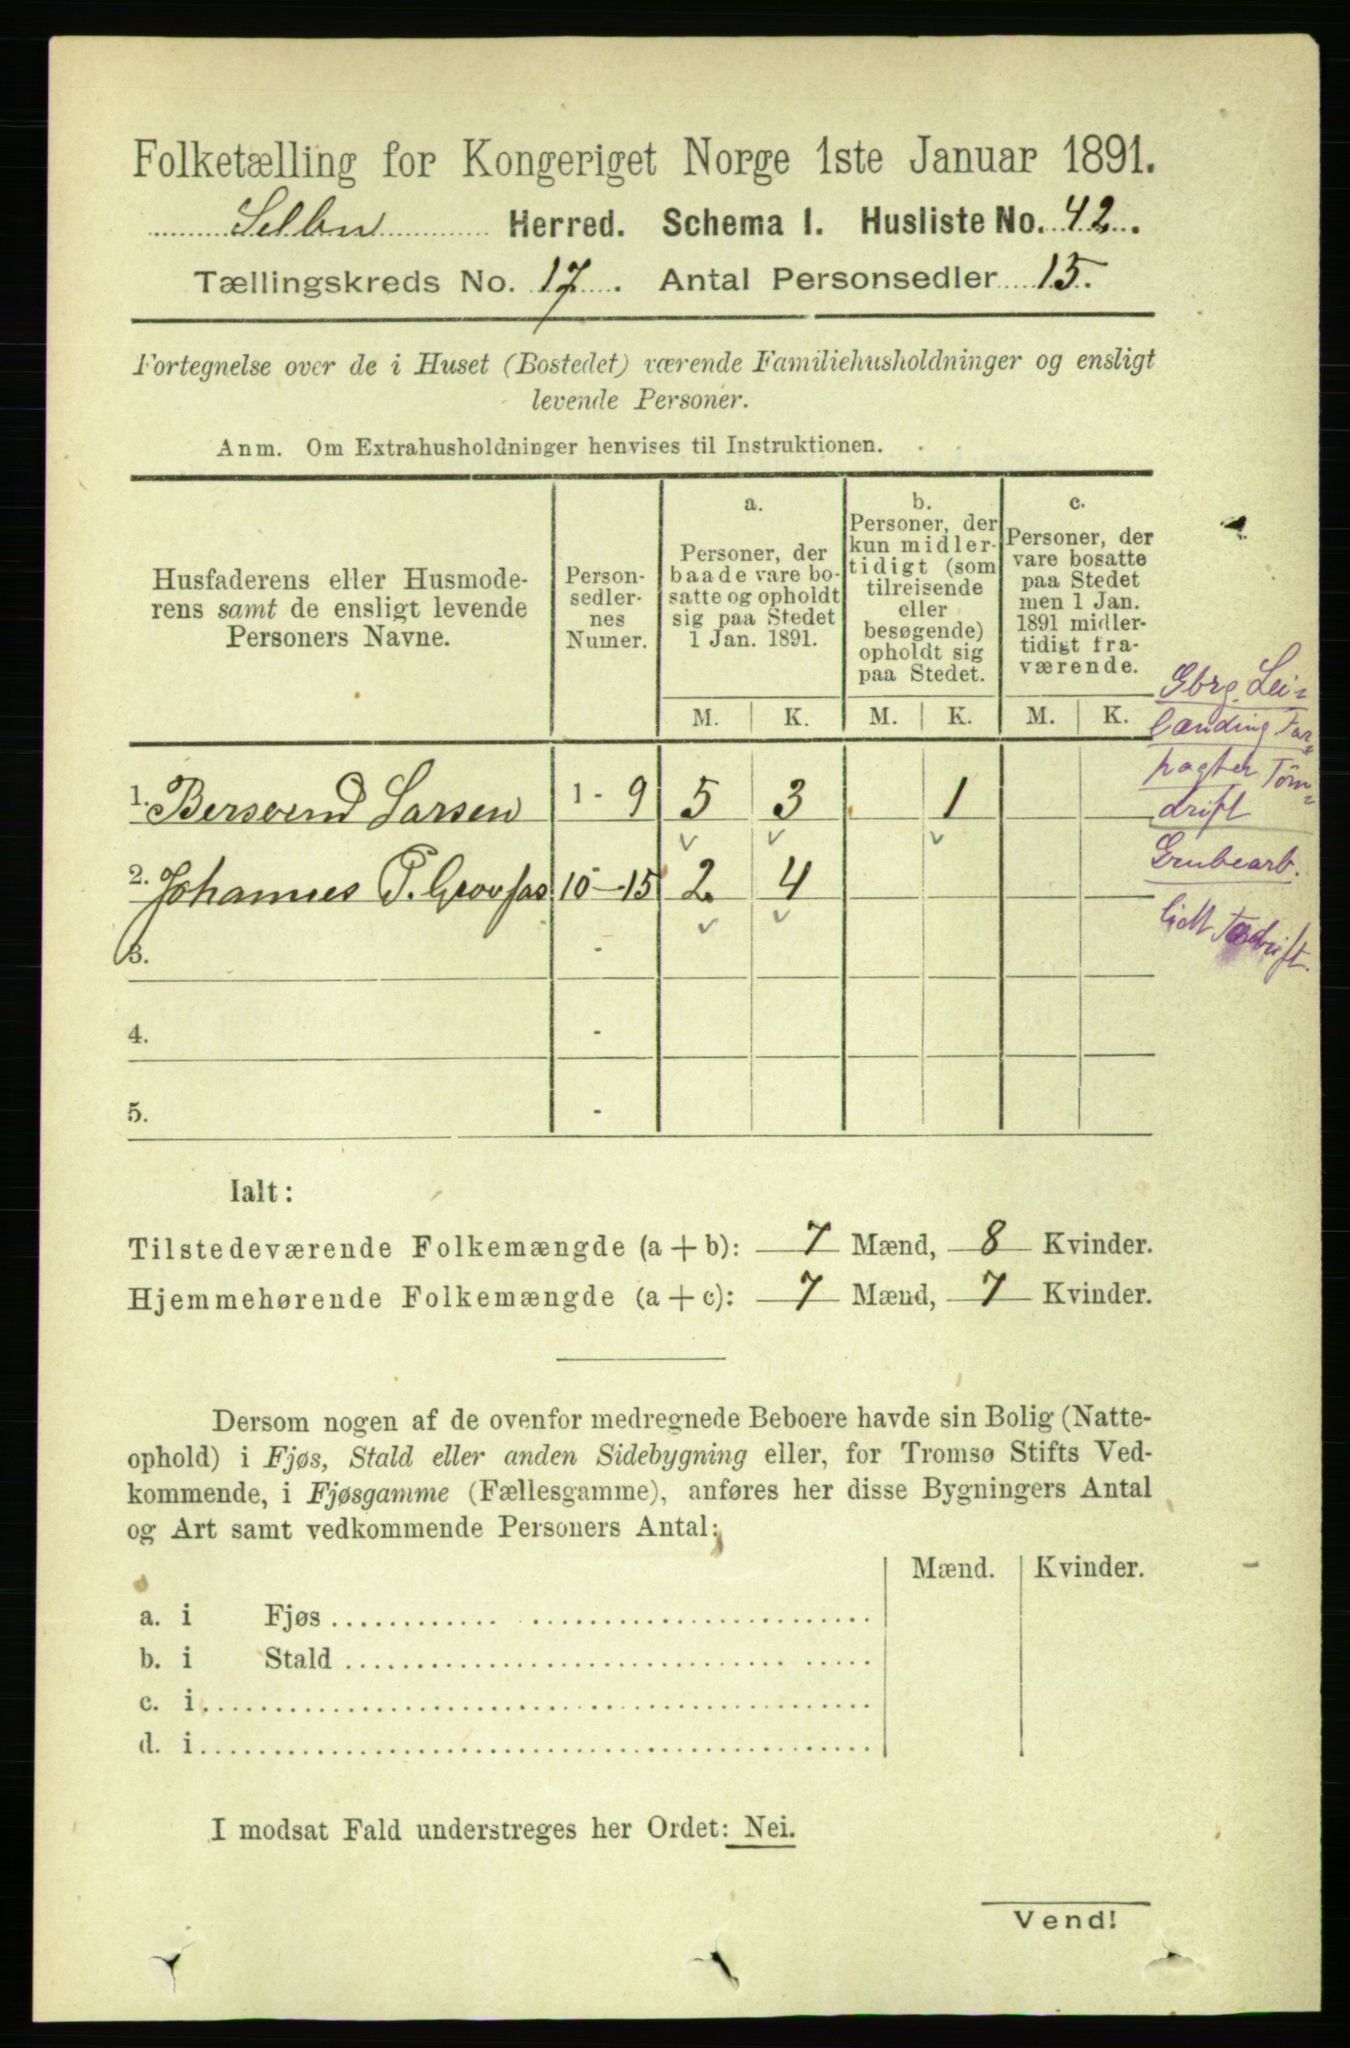 Folketælling for Kongeriget Norge 1ste Januar 1891.
Selbu Herred. Schema I. Husliste No. 42.
Tællingskreds No. 17. Antal Personsedler 15.
Fortegnelse over de i Huset (Bostedet) værende Familiehusholdninger og ensligt
levende Personer.
Anm. Om Extrahusholdninger henvises til Instruktionen.
Husfaderens eller Husmode-
rens samt de ensligt levende
Personers Navne.
Person-
sedler-
nes
Numer.
a.
Personer, der
baade vare bo-
satte og opholdt
sig paa Stedet
1 Jan. 1891.
b.
Personer, der
kun midler-
tidigt (som
tilreisende
eller
besøgende)
opholdt sig
paa Stedet.
c.
Personer, der
vare bosatte
paa Stedet
men 1 Jan.
1891 midler-
tidigt fra-
værende.
M. K. M. K. M. K.
1. Bersvend Larsen 1 - 9 5 3 1
2. Johannes P. 10-15 2 4
3. -
4. -
5. -
Gbrg. Lei-
lænding For-
pagter Töm-
drift
Grubearb.
lidt
Ialt:
Tilstedeværende Folkemængde (a + b): 7 Mænd, 8 Kvinder.
Hjemmehørende Folkemængde (a + c): 7 Mænd, 7 Kvinder.
Dersom nogen af de ovenfor medregnede Beboere havde sin Bolig (Natte-
ophold) i Fjøs, Stald eller anden Sidebygning eller, for Tromsø Stifts Ved-
kommende, i Fjøsgamme (Fællesgamme), anføres her disse Bygningers Antal
og Art samt vedkommende Personers Antal:
Mænd. Kvinder.
a. i Fjøs
b. i Stald
c. i
d. i
I modsat Fald understreges her Ordet: Nei.
Vend!